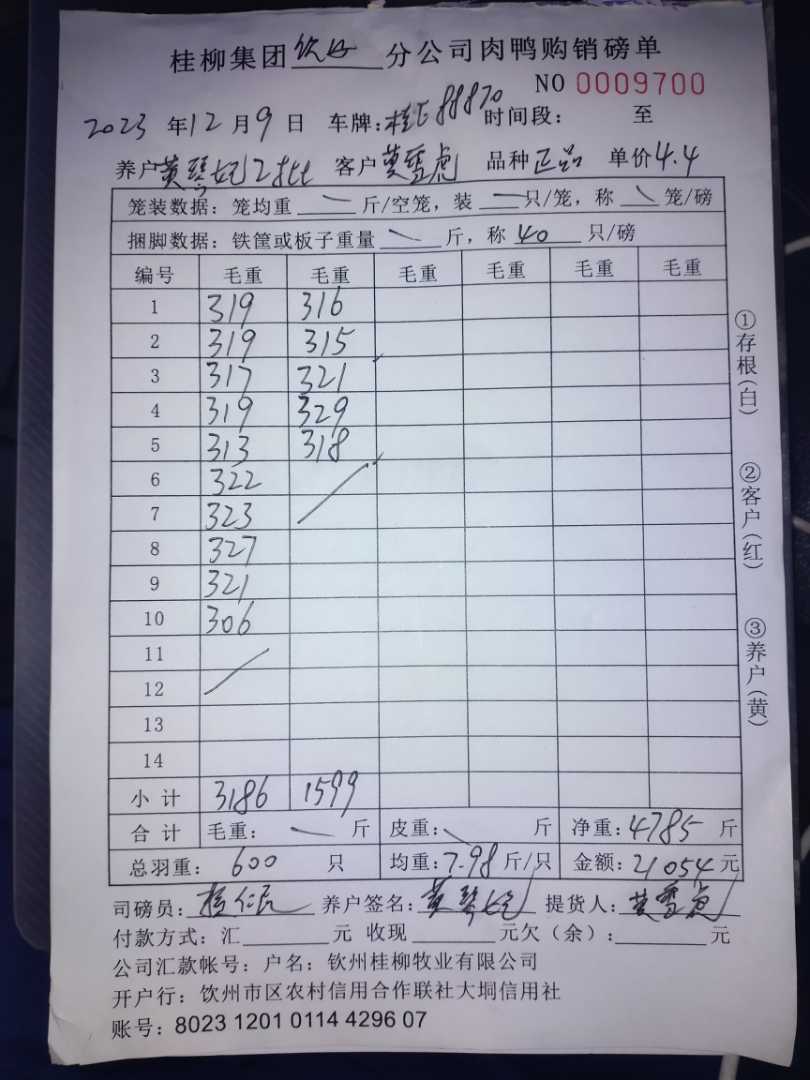 桂柳集团钦州分公司肉鸭购销磅单
NO 0009700
2023年12月9日 车牌:桂E88870 时间段: 至
养户黄琴妃2批 客户黄雪虎 品种正品 单价4.4
笼装数据:笼均重 — 斤/空笼,装 — 只/笼,称 \ 笼/磅
捆脚数据:铁筐或板子重量 \ 斤,称 40 只/磅
编号 毛重 毛重 毛重 毛重 毛重 毛重
1 319 316
2 319 315
3 317 321
4 319 329
5 313 318
6 322
7 323
8 327
9 321
10 306
11
12
13
14
小计 3186 1599
合计 毛重: — 斤 皮重: \ 斤 净重:4785斤
总羽重: 600 只 均重:7.98斤/只 金额:21054元
司磅员: 养户签名:黄琴妃 提货人:黄雪虎
付款方式:汇 元 收现 元欠(余): 元
公司汇款帐号:户名:钦州桂柳牧业有限公司
开户行:饮州市区农村信用合作联社大垌信用社
账号:8023 1201 0114 4296 07
①存根(白)
②客户(红)
③养户(黄)